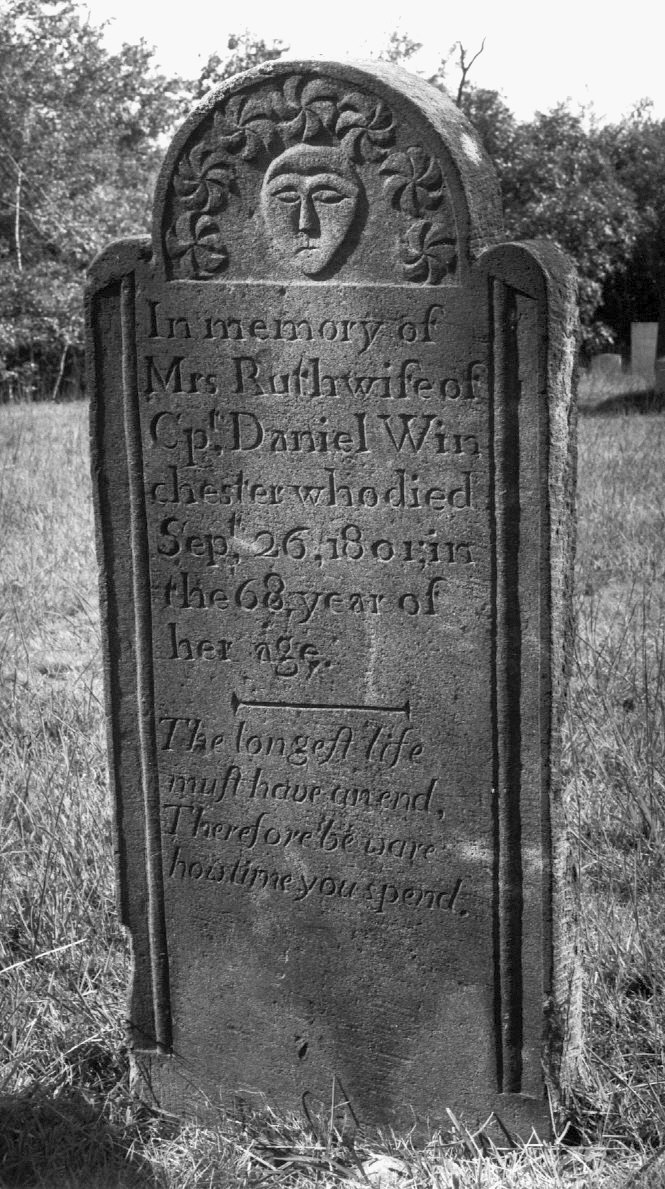 In memory of
Mrs Ruth wife of
Cpt. Daniel Win
chester who died
Sept. 26, 1801, in
the 68, year of
her age.
The longest life
must have an end,
Therefore be ware
how time you spend.